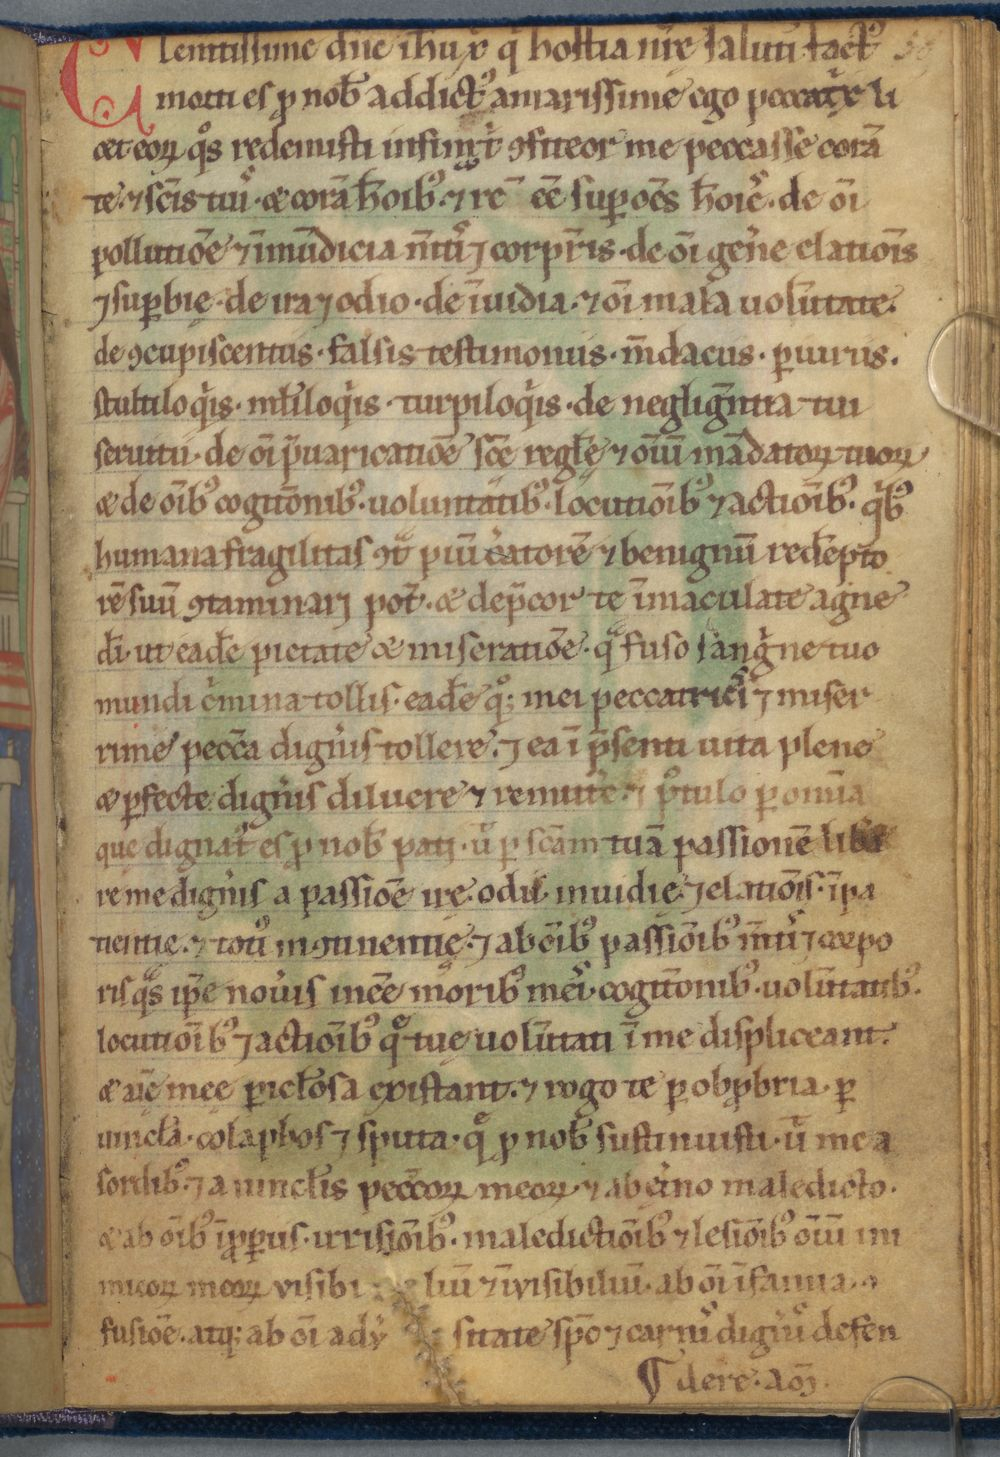 Clemtissime dn̄e ih̄u xp̄ q̄ hostia nr̄e saluti fact᷒
morti es ꝓ nob̄ addict᷒ amarissime ego peccat͛x li
cet eoꝝ q͛s redemisti infim͛ ꝯfiteor me peccasse corā
te ⁊ sc̄is tui᷒ · & corā hoīb᷒ ⁊ re ̄ ee̅ suꝑ oēs hoīe᷒ · de oī
pollutiōe ⁊ īmūdicia m̄ti᷒ ⁊ corpr̄is · de oī gen̄e elatiōis
⁊ suꝑbię · de ira ⁊ odio · de īuidia · ⁊ oī mala uolūtate ·
de ꝯcupiscentiis · falsis testimoniis · m̄daciis · ꝑiuriis .
stultiloq̇is · ml̄tiloq̇is · turpiloq̇is · de neglig̅ntia tui
seruitii · de oī p̄uaricatiōe sc̄e regl̄ę ⁊ oīum mādatoꝝ tuoꝝ
& de oīb᷒ cogitōnib᷒ · uoluntatib᷒ · locutiōib᷒ ⁊ actiōib᷒ · q̇b᷒
humana fragilitas ꝯt͛ piū c͛atorē ⁊ benignū redēpto
rē suū ꝯtaminarj pot̄ · & dep̄cor te īmaculate agne
dī · ut eadē pietate & miseratiōe · q̄ fuso sanġne tuo
mundi ċmina tollis · eadē q᷒; mei peccatrici᷒ ⁊ miser
rime pecc̄a dign͛is tollere · ⁊ ea ī p̄senti uita plene
& ꝑfecte dign͛is diluere ⁊ remitt͛e · ⁊ p᷒tulo ꝑ omīa
que dignat᷒ es ꝓ nob̄ patj · ū ꝑ scām tuā passionē libe
re me dign͛is a passiōe irę · odii · inuidię · ⁊ elatiōis · īpa
tientię · ⁊ toti᷒ inꝯtinentię · ⁊ ab oīb᷒ passiōib᷒ m̄ti᷒ ⁊ corpo
ris q̄s ip̄e nou͛is inee̅ morib᷒ mei᷒ · cogitōnib᷒ · uolūtatib᷒ ·
locutiōib᷒ ⁊ actiōib᷒ q̄ tuę uolūtati ī me displiceant ·
& aīę meę ꝑicl̄osa existant · ⁊ rogo te ꝑ obꝓbria · ꝑ
uincl̄a · colaphos ⁊ sputa · q̄ ꝓ nob̄ sustinuisti · ū me a
sordib᷒ · ⁊ a uincl̄is pecc̄oꝝ meoꝝ · ⁊ ab et͛no maledicto ·
& ab oīb᷒ īꝓꝑiis · irrisiōib᷒ · maledictiōib᷒ ⁊ lesiōib᷒ oīum ini
micoꝝ meoꝝ visibi liū ⁊ īvisibiliū · ab oī īfamia ·
fusiōe · atq; ab oī adv͛ sitate sp̄o ⁊ carni᷒ dign͛i᷒ defen
dere · aōj ·